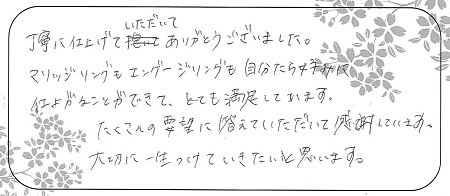 いただいて
丁寧に仕上げて ありがとうございました。
マリッジリングもエンゲージリングも自分たち好みに
仕上がることができて、とても満足しています。
たくさんの要望に答えていただいて感謝しています。
大切に一生つけていきたいと思います。